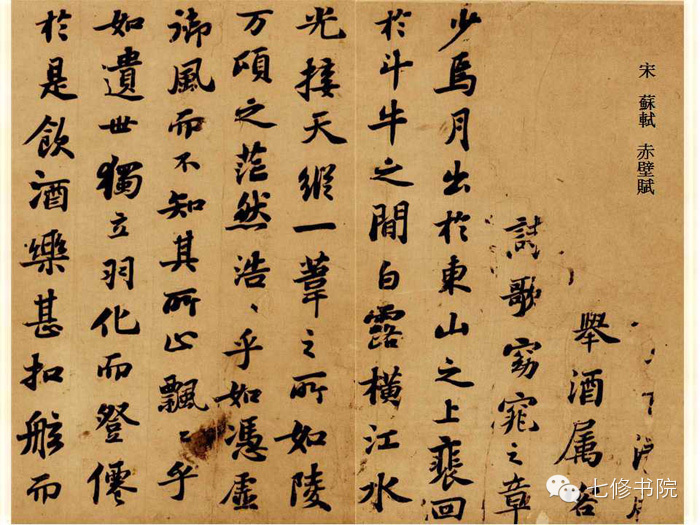 宋 蘇軾 赤壁賦
舉酒属客
詩歌窈窕之章
少焉月出於東山之上裴回
於斗牛之間白露橫江水
光接天縱一葦之所如陵
万頃之茫然浩〻乎如馮虛
御風而不知其所止飄〻乎
如遺世獨立羽化而登僊
於是飲酒樂甚扣舷而
七修书院